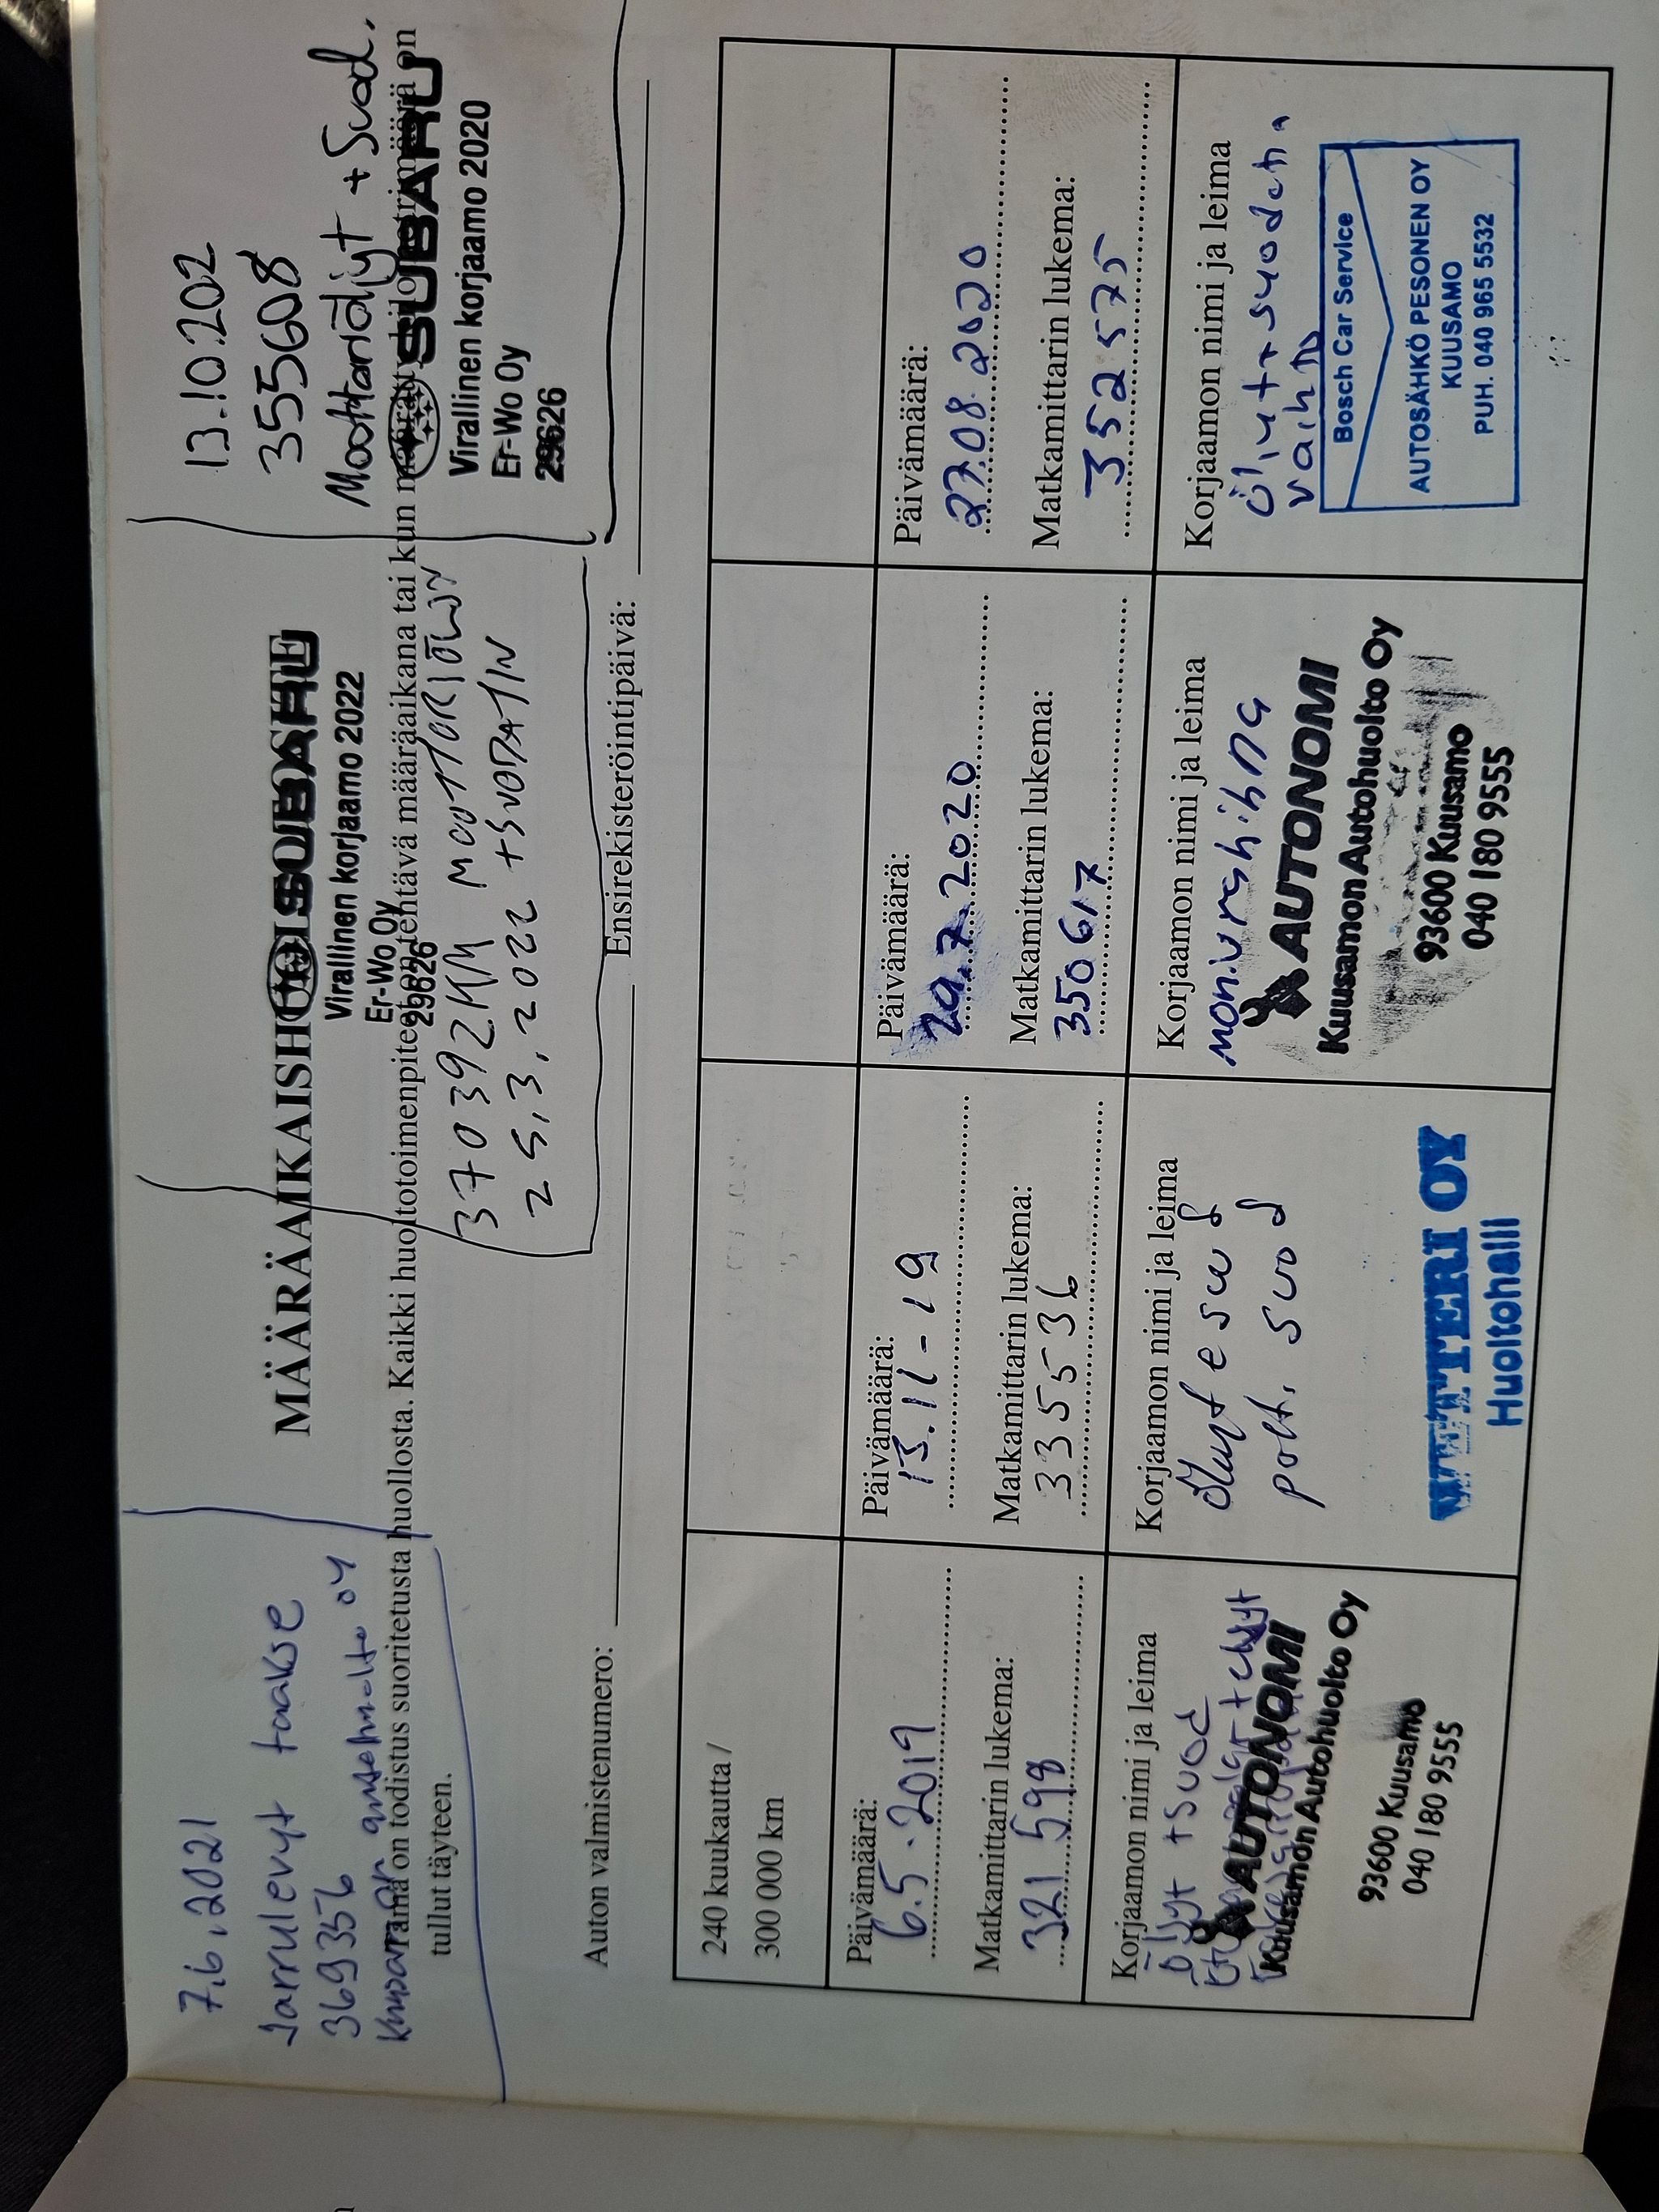 7.6.2021
Jarrulevyt taakse
369356
Kuusamon autohuolto oy
MÄÄRÄAIKAISHUOL
SUBARU
Virallinen korjaamo 2022
Er-Wo Oy
29626
370392KM MOOTTORIÖLJY
25.3.2022 +SUODATIN
13.10.202
355608
Moottoriöljyt + Suod.
SUBARU
Virallinen korjaamo 2020
Er-Wo Oy
29626
on todistus suoritetusta huollosta. Kaikki huoltotoimenpiteet on tehtävä määräaikana tai kun määrätty kilometrimäärä on
tullut täyteen.
Auton valmistenumero: Ensirekisteröintipäivä:
240 kuukautta /
300 000 km
Päivämäärä:
6.5.2019
Matkamittarin lukema:
321 598
Korjaamon nimi ja leima
Öljyt + suod
AUTONOMI
Kuusamon Autohuolto Oy
93600 Kuusamo
040 180 9555
Päivämäärä:
13.11-19
Matkamittarin lukema:
335536
Korjaamon nimi ja leima
Öljyt e suod
polt. suod
WETTERI OY
Huoltohalli
Päivämäärä:
29.7.2020
Matkamittarin lukema:
350617
Korjaamon nimi ja leima
moniurahihna
AUTONOMI
Kuusamon Autohuolto Oy
93600 Kuusamo
040 180 9555
Päivämäärä:
27.08.2020
Matkamittarin lukema:
352575
Korjaamon nimi ja leima
Öljyt + suodatin
vaihto
Bosch Car Service
AUTOSÄHKÖ PESONEN OY
KUUSAMO
PUH. 040 965 5532